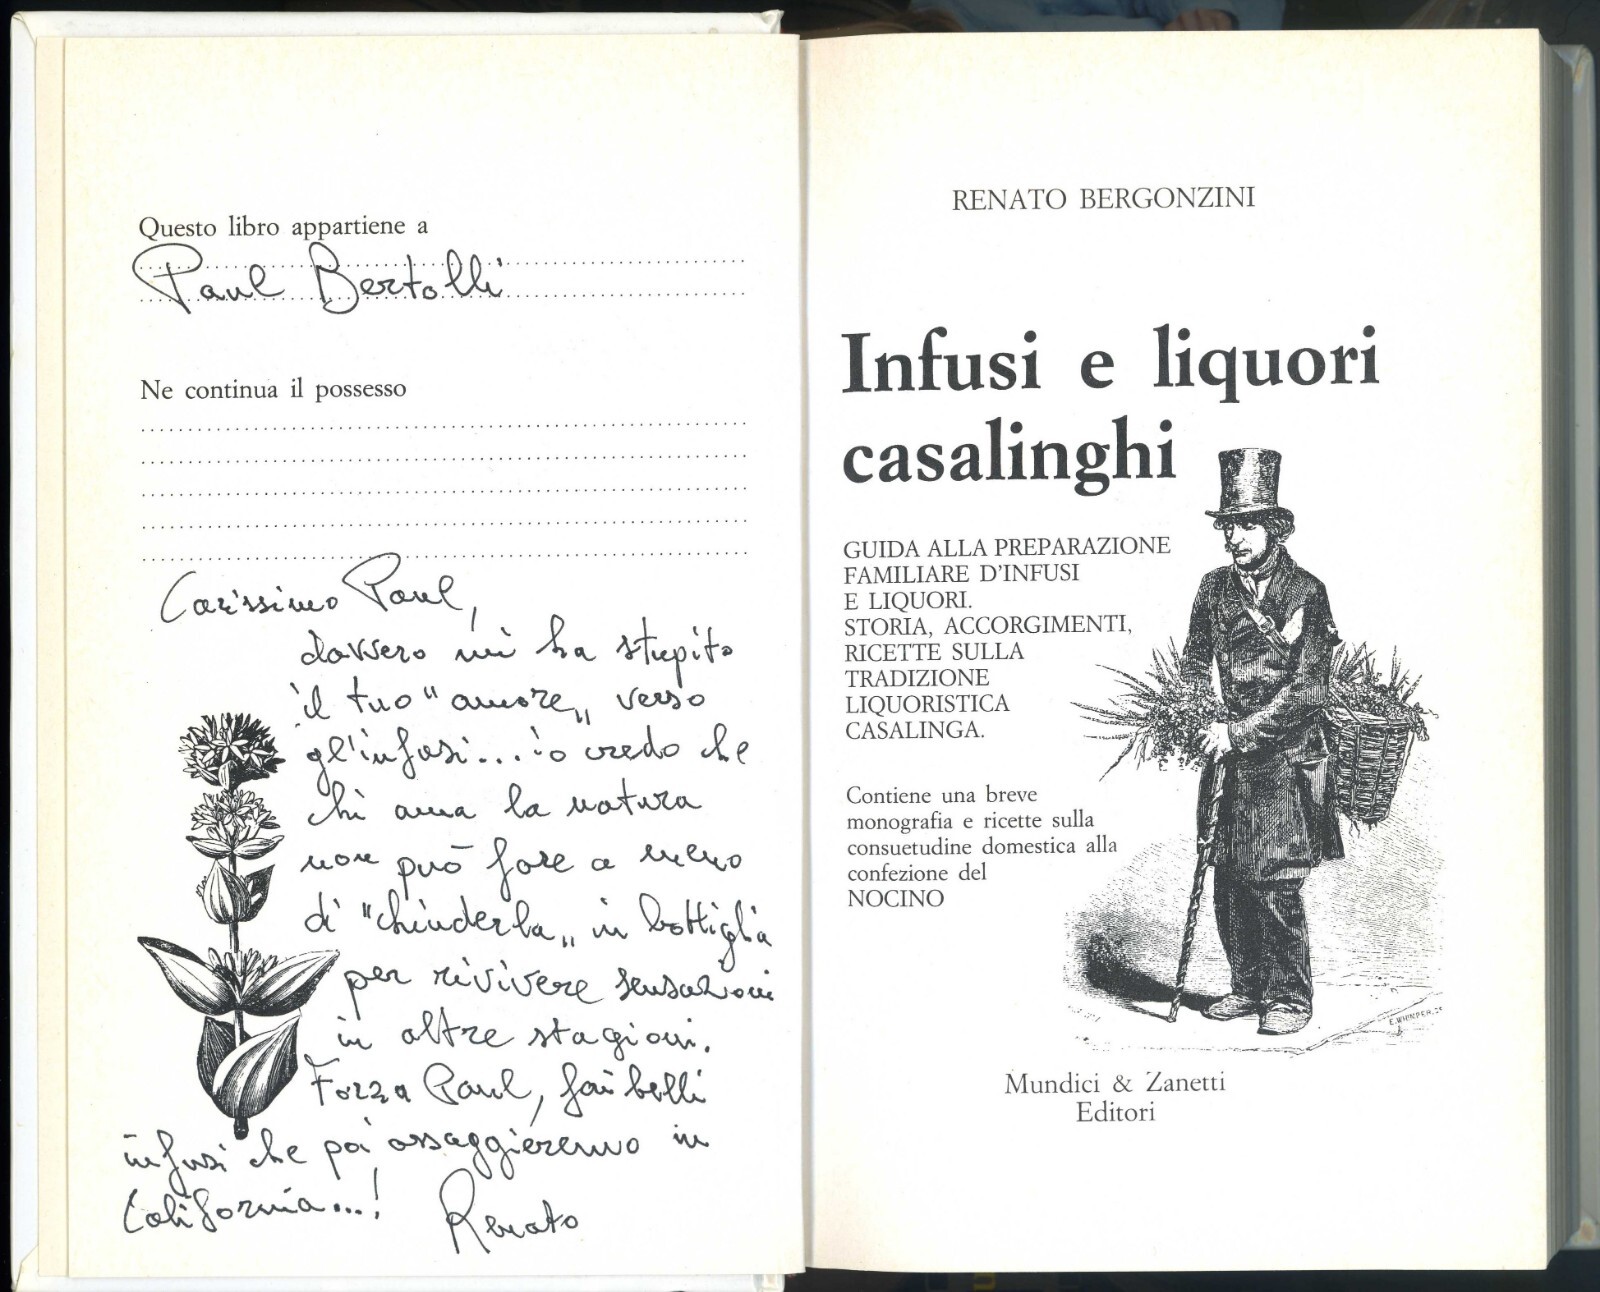 Questo libro appartiene a
Paul Bertolli
Ne continua il possesso
Carissimo Paul,
davvero mi ha stupito
il tuo "amore" verso
gl'infusi... io credo che
chi ama la natura
non può fare a meno
di "chiuderla" in bottiglia
per rivivere sensazioni
in altre stagioni.
Forza Paul, fai belli
infusi che poi assaggieremo in
California...!
Renato
RENATO BERGONZINI
Infusi e liquori
casalinghi
GUIDA ALLA PREPARAZIONE
FAMILIARE D'INFUSI
E LIQUORI.
STORIA, ACCORGIMENTI,
RICETTE SULLA
TRADIZIONE
LIQUORISTICA
CASALINGA.
Contiene una breve
monografia e ricette sulla
consuetudine domestica alla
confezione del
NOCINO
E. WHIMPER. SC
Mundici & Zanetti
Editori